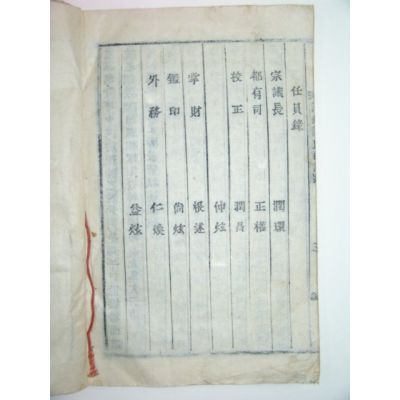 任員錄
宗議長 潤環
都有司 正權
校正 潤昌
仲炫
掌財 根述
監印 尙炫
外務 仁煥
益炫